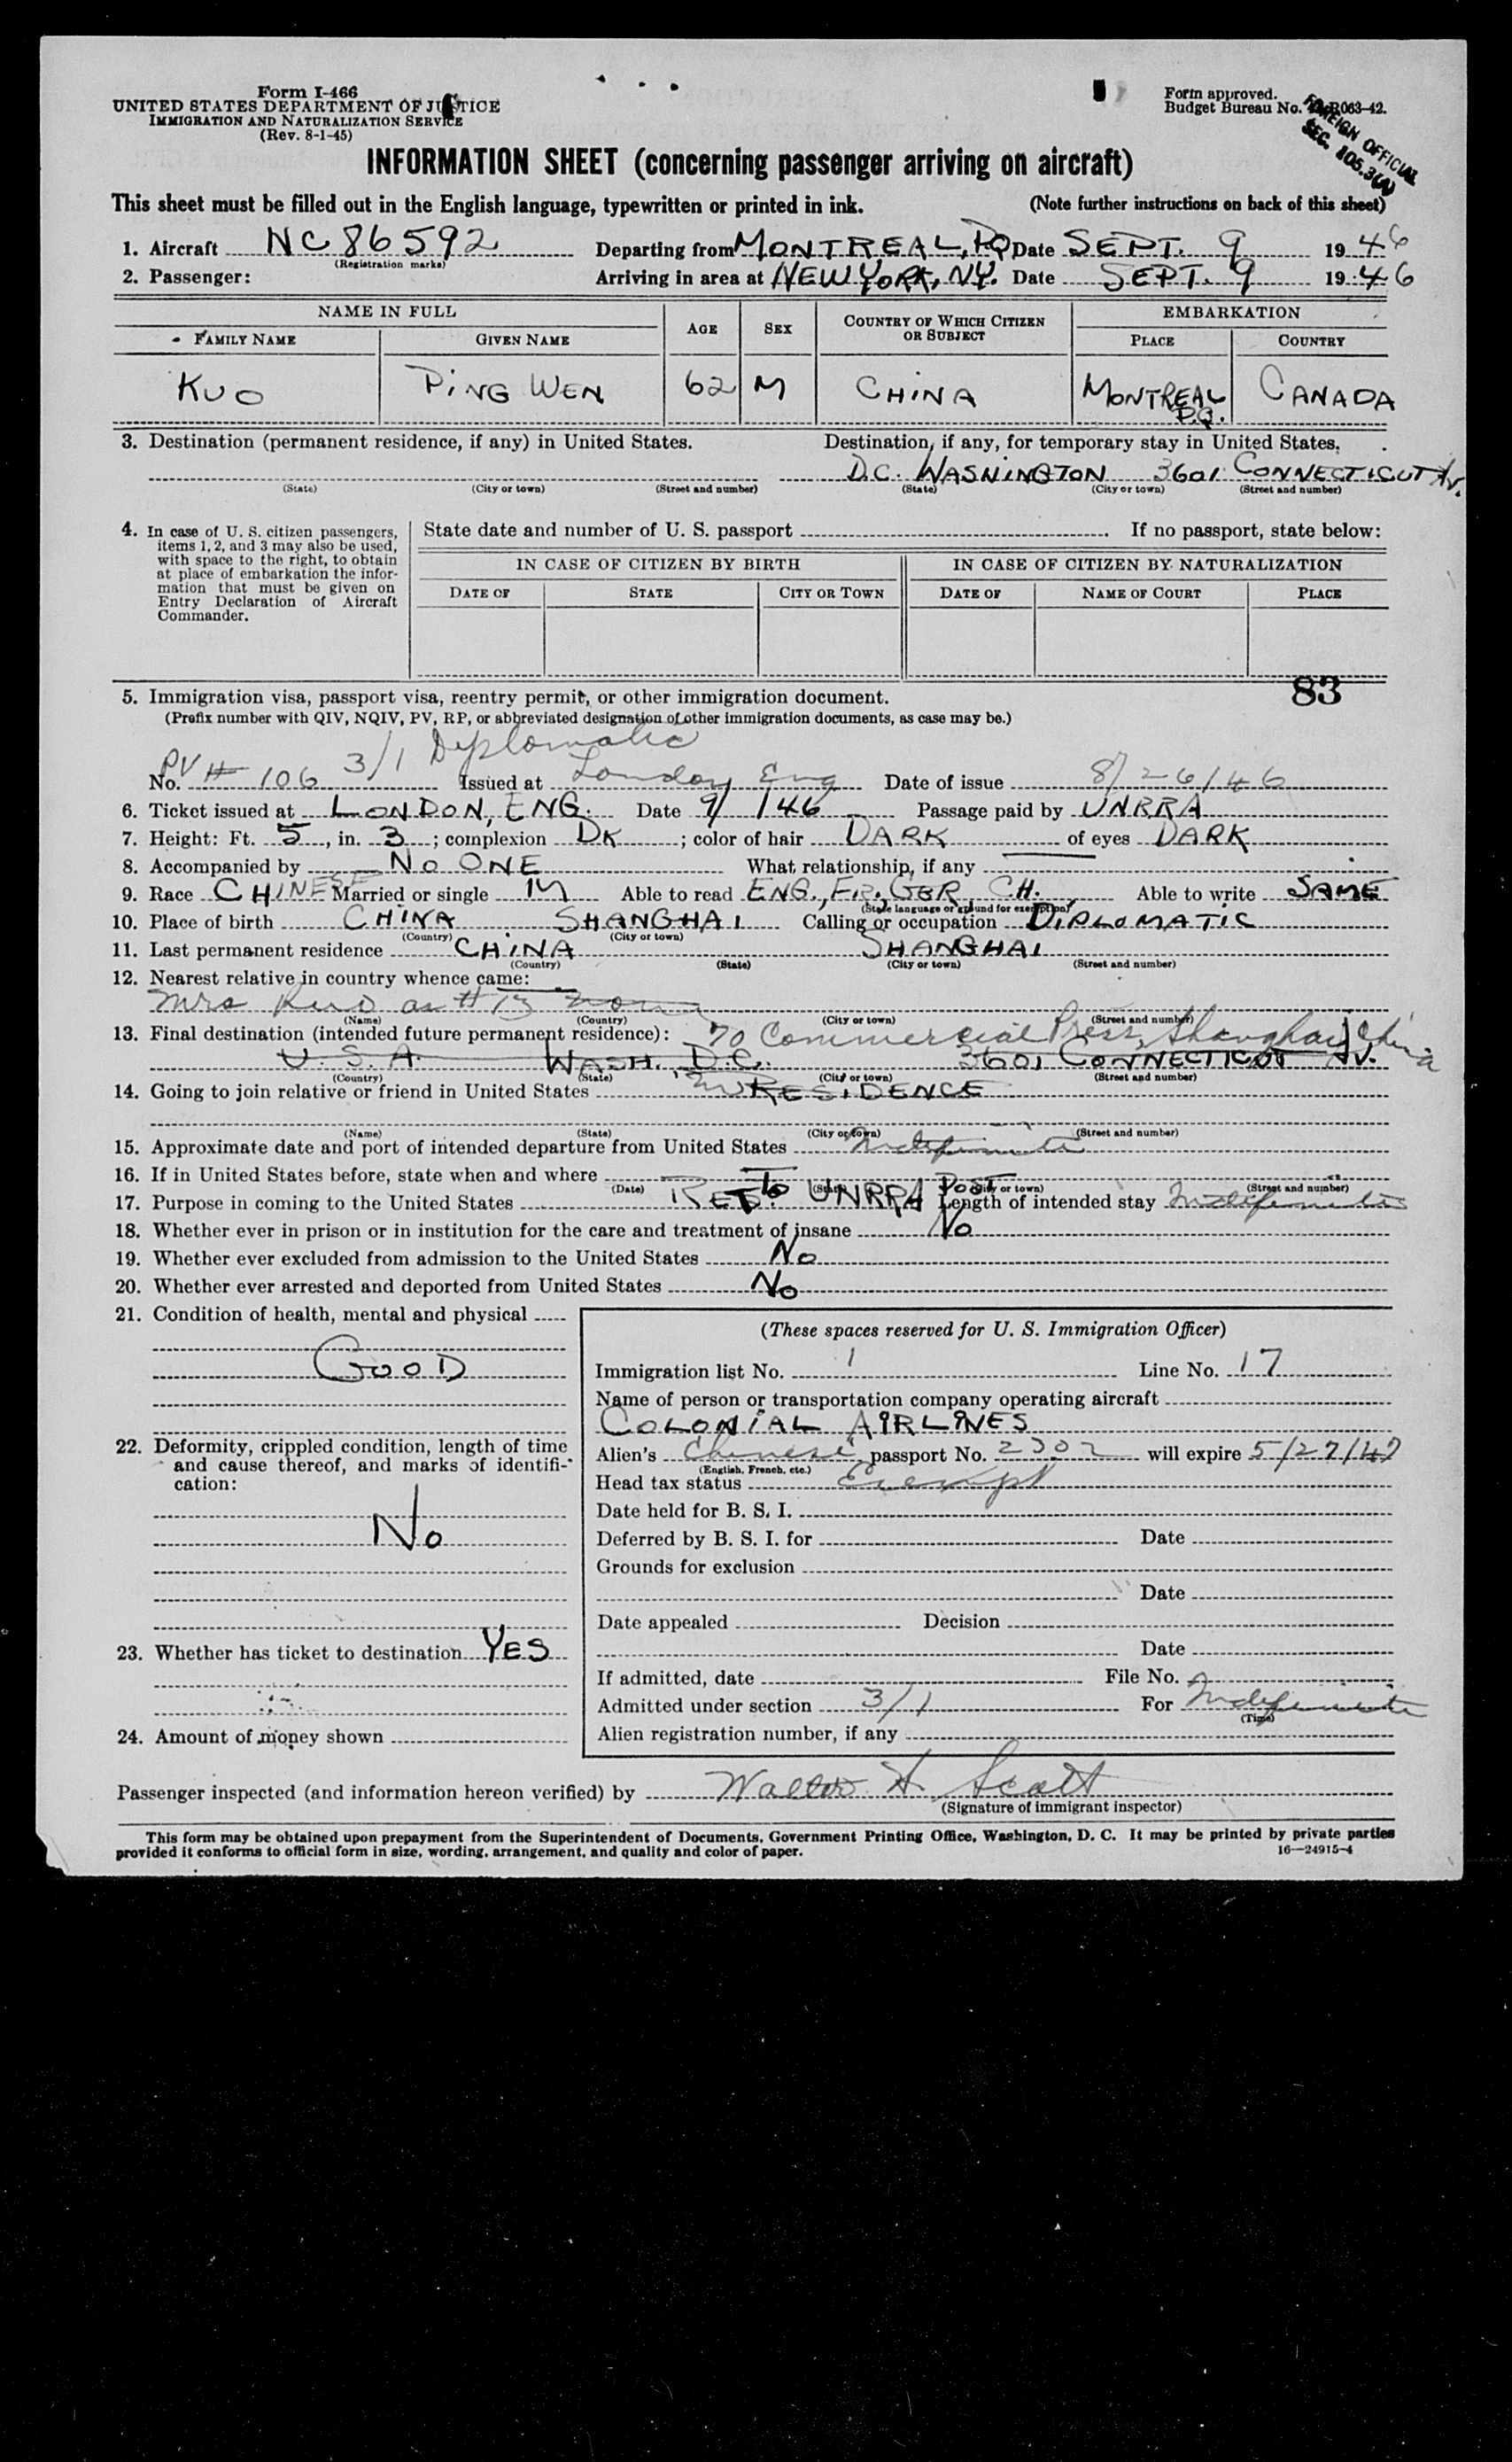 Form I-466
UNITED STATES DEPARTMENT OF JUSTICE
IMMIGRATION AND NATURALIZATION SERVICE
(Rev. 8-1-45)
Form approved.
Budget Bureau No. R063-42.
FOREIGN OFFICIAL
SEC. 105.3(A)
INFORMATION SHEET (concerning passenger arriving on aircraft)
This sheet must be filled out in the English language, typewritten or printed in ink. (Note further instructions on back of this sheet)
1. Aircraft NC 86592 Departing from MONTREAL, PQ Date SEPT. 9 1946
(Registration marks)
2. Passenger: Arriving in area at NEW YORK, NY. Date SEPT. 9 1946
NAME IN FULL AGE SEX COUNTRY OF WHICH CITIZEN OR SUBJECT EMBARKATION
FAMILY NAME GIVEN NAME PLACE COUNTRY
KUO PING WEN 62 M CHINA MONTREAL P.Q. CANADA
3. Destination (permanent residence, if any) in United States. Destination, if any, for temporary stay in United States.
D.C. WASHINGTON 3601 CONNECTICUT AV.
(State) (City or town) (Street and number) (State) (City or town) (Street and number)
4. In case of U. S. citizen passengers, items 1, 2, and 3 may also be used, with space to the right, to obtain at place of embarkation the information that must be given on Entry Declaration of Aircraft Commander.
State date and number of U. S. passport If no passport, state below:
IN CASE OF CITIZEN BY BIRTH IN CASE OF CITIZEN BY NATURALIZATION
DATE OF STATE CITY OR TOWN DATE OF NAME OF COURT PLACE
83
5. Immigration visa, passport visa, reentry permit, or other immigration document.
(Prefix number with QIV, NQIV, PV, RP, or abbreviated designation of other immigration documents, as case may be.)
3/1 Diplomatic
No. PV # 106 Issued at London Eng Date of issue 8/26/46
6. Ticket issued at LONDON, ENG. Date 9/ /46 Passage paid by UNRRA
7. Height: Ft. 5, in. 3; complexion DK; color of hair DARK of eyes DARK
8. Accompanied by NO ONE What relationship, if any
9. Race CHINESE Married or single M Able to read ENG., FR., GER CH. Able to write SAME
(State language or ground for exemption)
10. Place of birth CHINA SHANGHAI Calling or occupation DIPLOMATIC
(Country) (City or town)
11. Last permanent residence CHINA SHANGHAI
(Country) (State) (City or town) (Street and number)
12. Nearest relative in country whence came:
Mrs Kuo as #13
(Name) (Country) (City or town) (Street and number)
13. Final destination (intended future permanent residence): % Commercial Press, Shanghai, China
U.S.A. WASH. D.C. 3601 CONNECTICUT AV.
(Country) (State) (City or town) (Street and number)
14. Going to join relative or friend in United States RESIDENCE
(Name) (State) (City or town) (Street and number)
15. Approximate date and port of intended departure from United States Indefinite
16. If in United States before, state when and where
(Date) (State) (City or town) (Street and number)
17. Purpose in coming to the United States RET. TO UNRRA POST Length of intended stay Indefinite
18. Whether ever in prison or in institution for the care and treatment of insane No
19. Whether ever excluded from admission to the United States No
20. Whether ever arrested and deported from United States No
21. Condition of health, mental and physical
GOOD
22. Deformity, crippled condition, length of time and cause thereof, and marks of identification:
No
23. Whether has ticket to destination YES
24. Amount of money shown
(These spaces reserved for U. S. Immigration Officer)
Immigration list No. 1 Line No. 17
Name of person or transportation company operating aircraft
COLONIAL AIRLINES
Alien's Chinese passport No. 2302 will expire 5/27/47
(English, French, etc.)
Head tax status Exempt
Date held for B. S. I.
Deferred by B. S. I. for Date
Grounds for exclusion
Date
Date appealed Decision
Date
If admitted, date File No.
Admitted under section 3/1 For Indefinite
(Time)
Alien registration number, if any
Passenger inspected (and information hereon verified) by Walter A. Scott
(Signature of immigrant inspector)
This form may be obtained upon prepayment from the Superintendent of Documents, Government Printing Office, Washington, D. C. It may be printed by private parties
provided it conforms to official form in size, wording, arrangement, and quality and color of paper. 16—24915-4